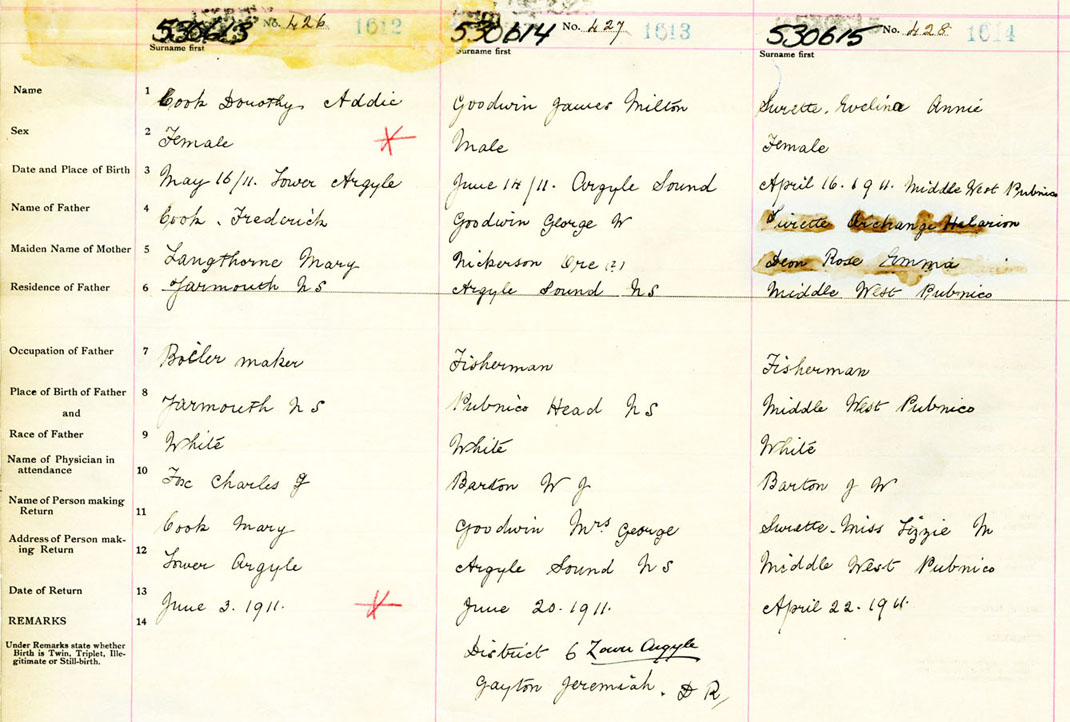 530613 No. 426 1612
Surname first
530614 No. 427 1613
Surname first
530615 No. 428 1614
Surname first
Name 1 Cook Dorothy Addie
Goodwin James Milton
Surette, Evelina Annie
Sex 2 Female X
Male
Female
Date and Place of Birth 3 May 16/11. Lower Argyle
June 14/11. Argyle Sound
April 16. 1911. Middle West Pubnico
Name of Father 4 Cook, Frederick
Goodwin George W
Surette Archange Hilarion
Maiden Name of Mother 5 Langthorne Mary
Nickerson Ore (?)
Deon Rose Emma
Residence of Father 6 Yarmouth N S
Argyle Sound N S
Middle West Pubnico
Occupation of Father 7 Boiler maker
Fisherman
Fisherman
Place of Birth of Father 8 Yarmouth N S
Pubnico Head N S
Middle West Pubnico
and
Race of Father 9 White
White
White
Name of Physician in
attendance 10 Fox Charles J
Barton W J
Barton J W
Name of Person making
Return 11 Cook Mary
Goodwin Mrs George
Surette Miss Lizzie M
Address of Person mak-
ing Return 12 Lower Argyle
Argyle Sound N S
Middle West Pubnico
Date of Return 13 June 3. 1911. X
June 20. 1911.
April 22. 1911.
REMARKS 14
Under Remarks state whether
Birth is Twin, Triplet, Ille-
gitimate or Still-birth.
District 6 Lower Argyle
Gayton Jeremiah. D R